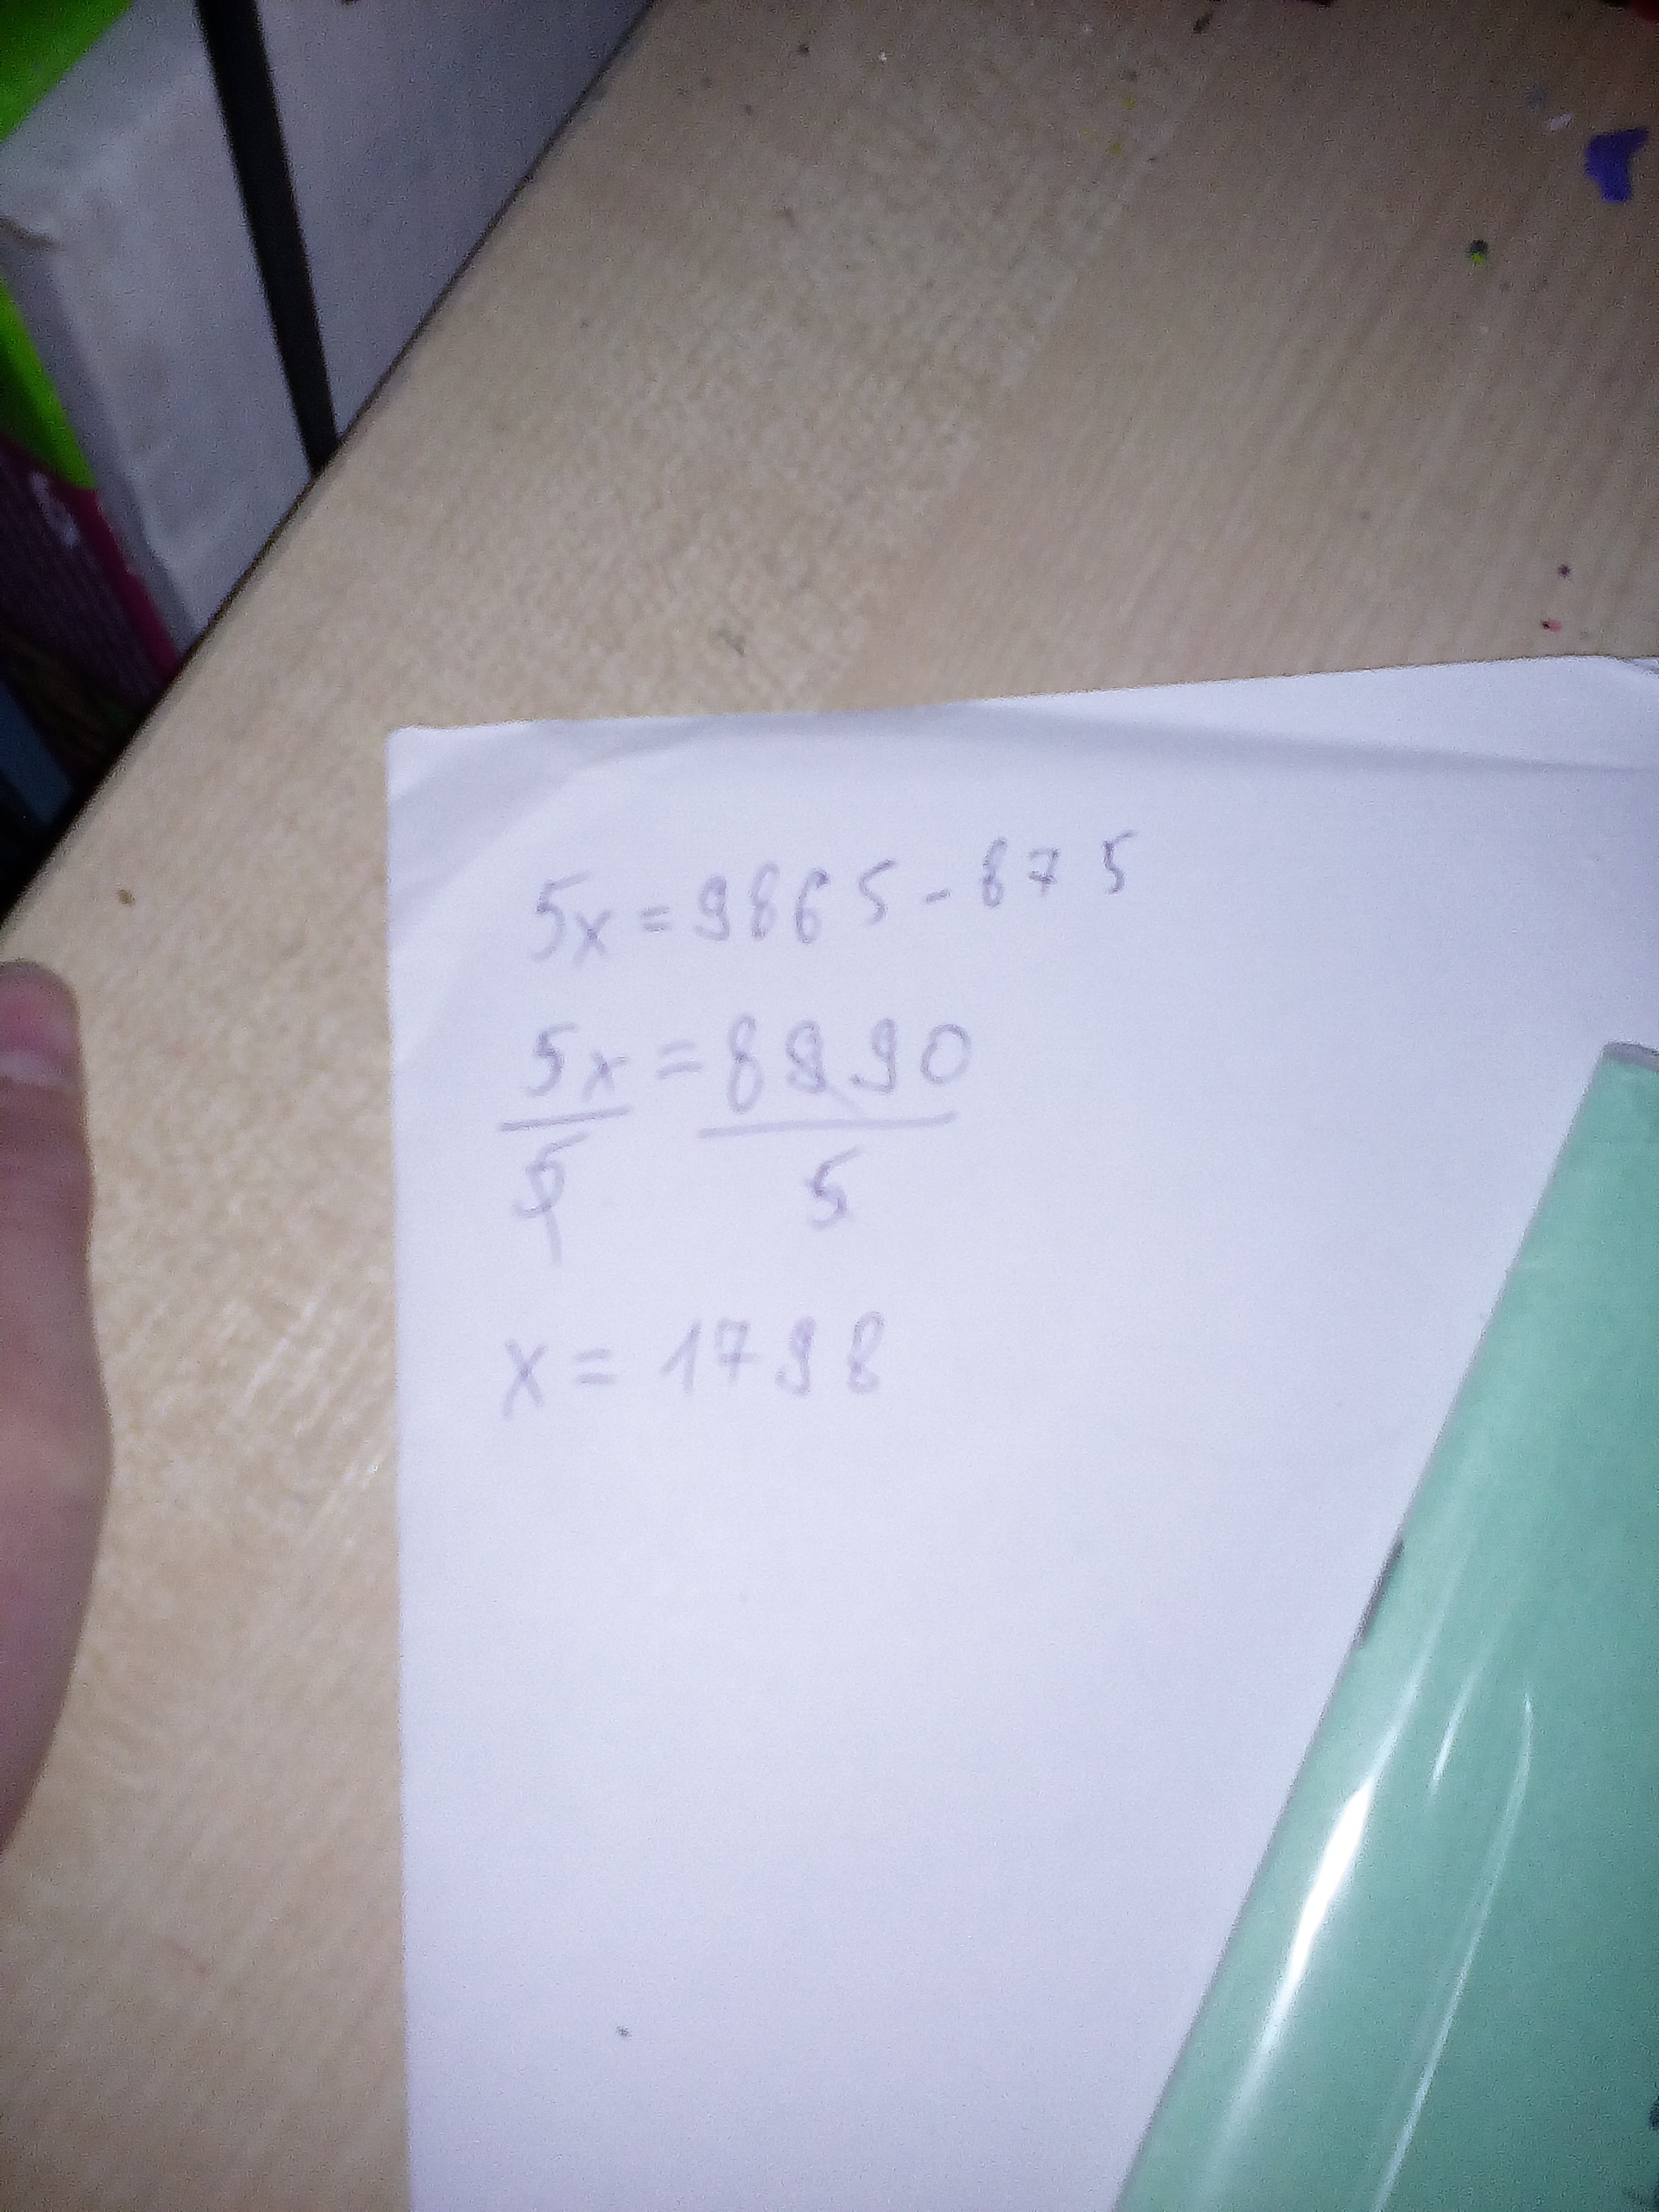 5x = 9865 - 875
5x = 8990
5 5
x = 1798